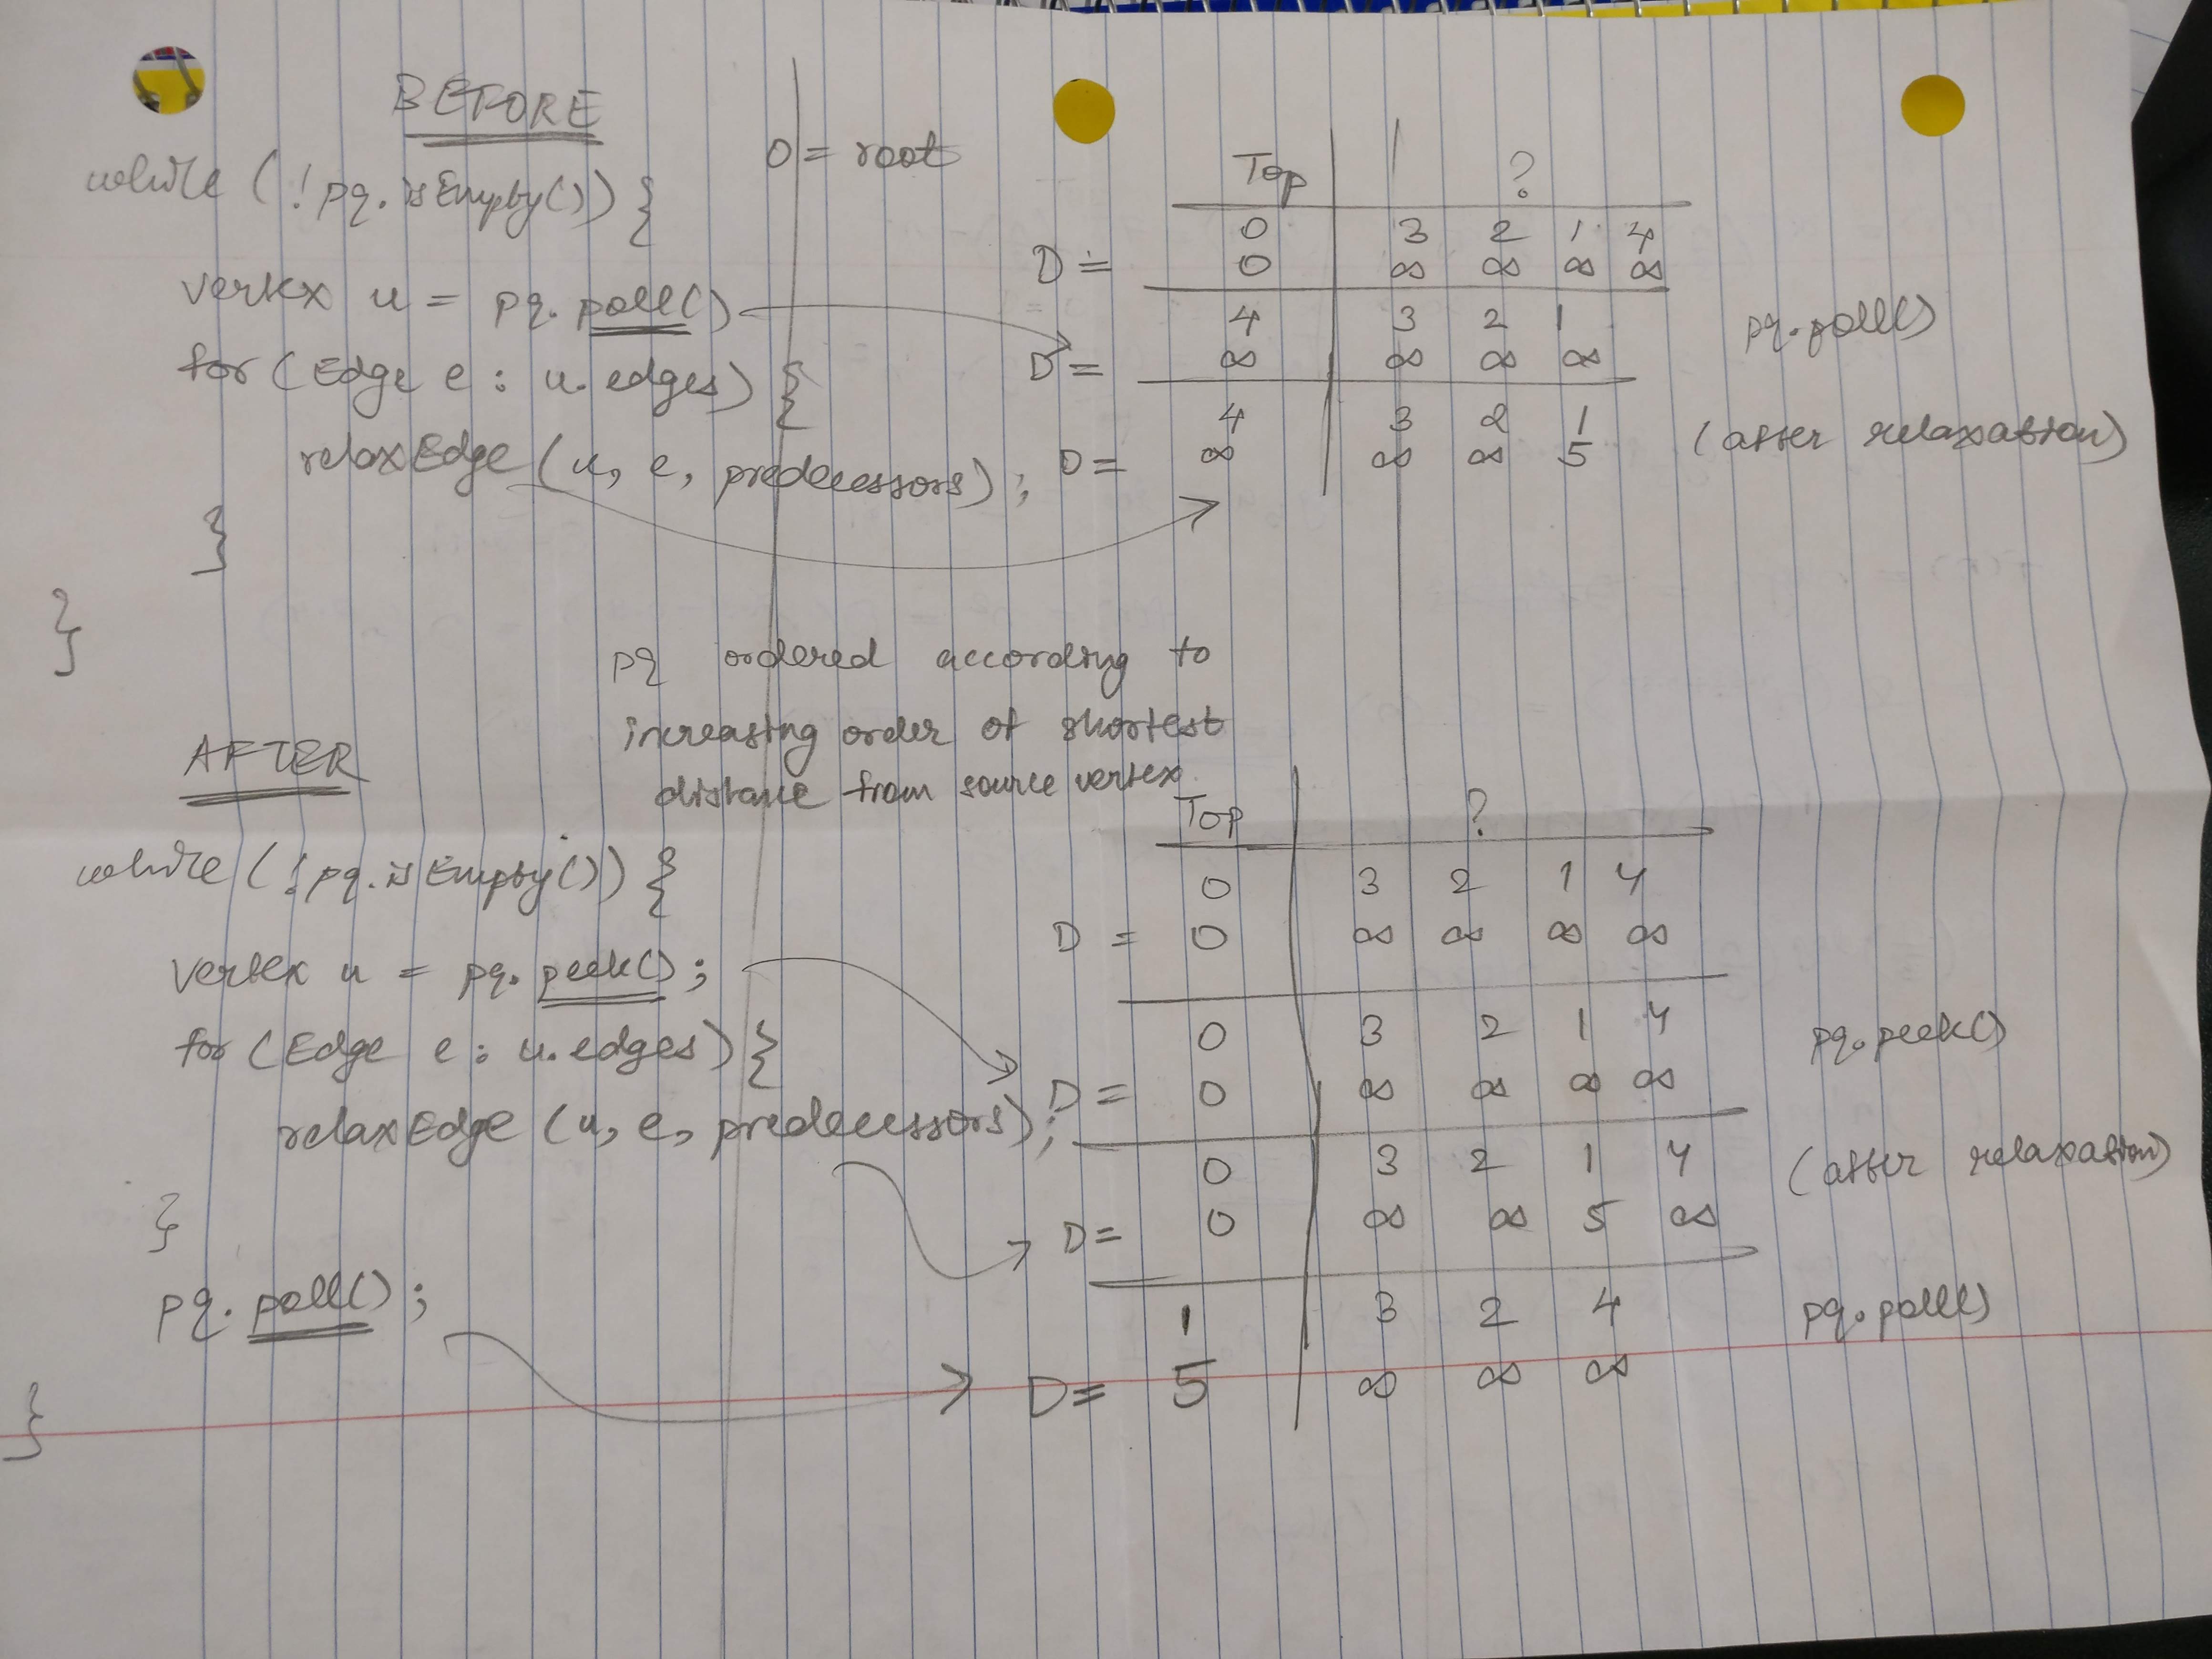 BEFORE
while (!pq.isEmpty()) {
vertex u = pq.poll()
for (Edge e : u.edges) {
relaxEdge (u, e, predecessors);
}
}
0 = root
Top ?
0 3 2 1 4
D = 0 ∞ ∞ ∞ ∞
4 3 2 1 pq.poll()
D = ∞ ∞ ∞ ∞
4 3 2 1 (after relaxation)
D = ∞ ∞ ∞ 5
pq ordered according to
increasing order of shortest
distance from source vertex
AFTER
while (!pq.isEmpty()) {
vertex u = pq.peek();
for (Edge e : u.edges) {
relaxEdge (u, e, predecessors);
}
pq.poll();
}
Top ?
0 3 2 1 4
D = 0 ∞ ∞ ∞ ∞
0 3 2 1 4 pq.peek()
D = 0 ∞ ∞ ∞ ∞
0 3 2 1 4 (after relaxation)
D = 0 ∞ ∞ 5 ∞
1 3 2 4 pq.poll()
D = 5 ∞ ∞ ∞